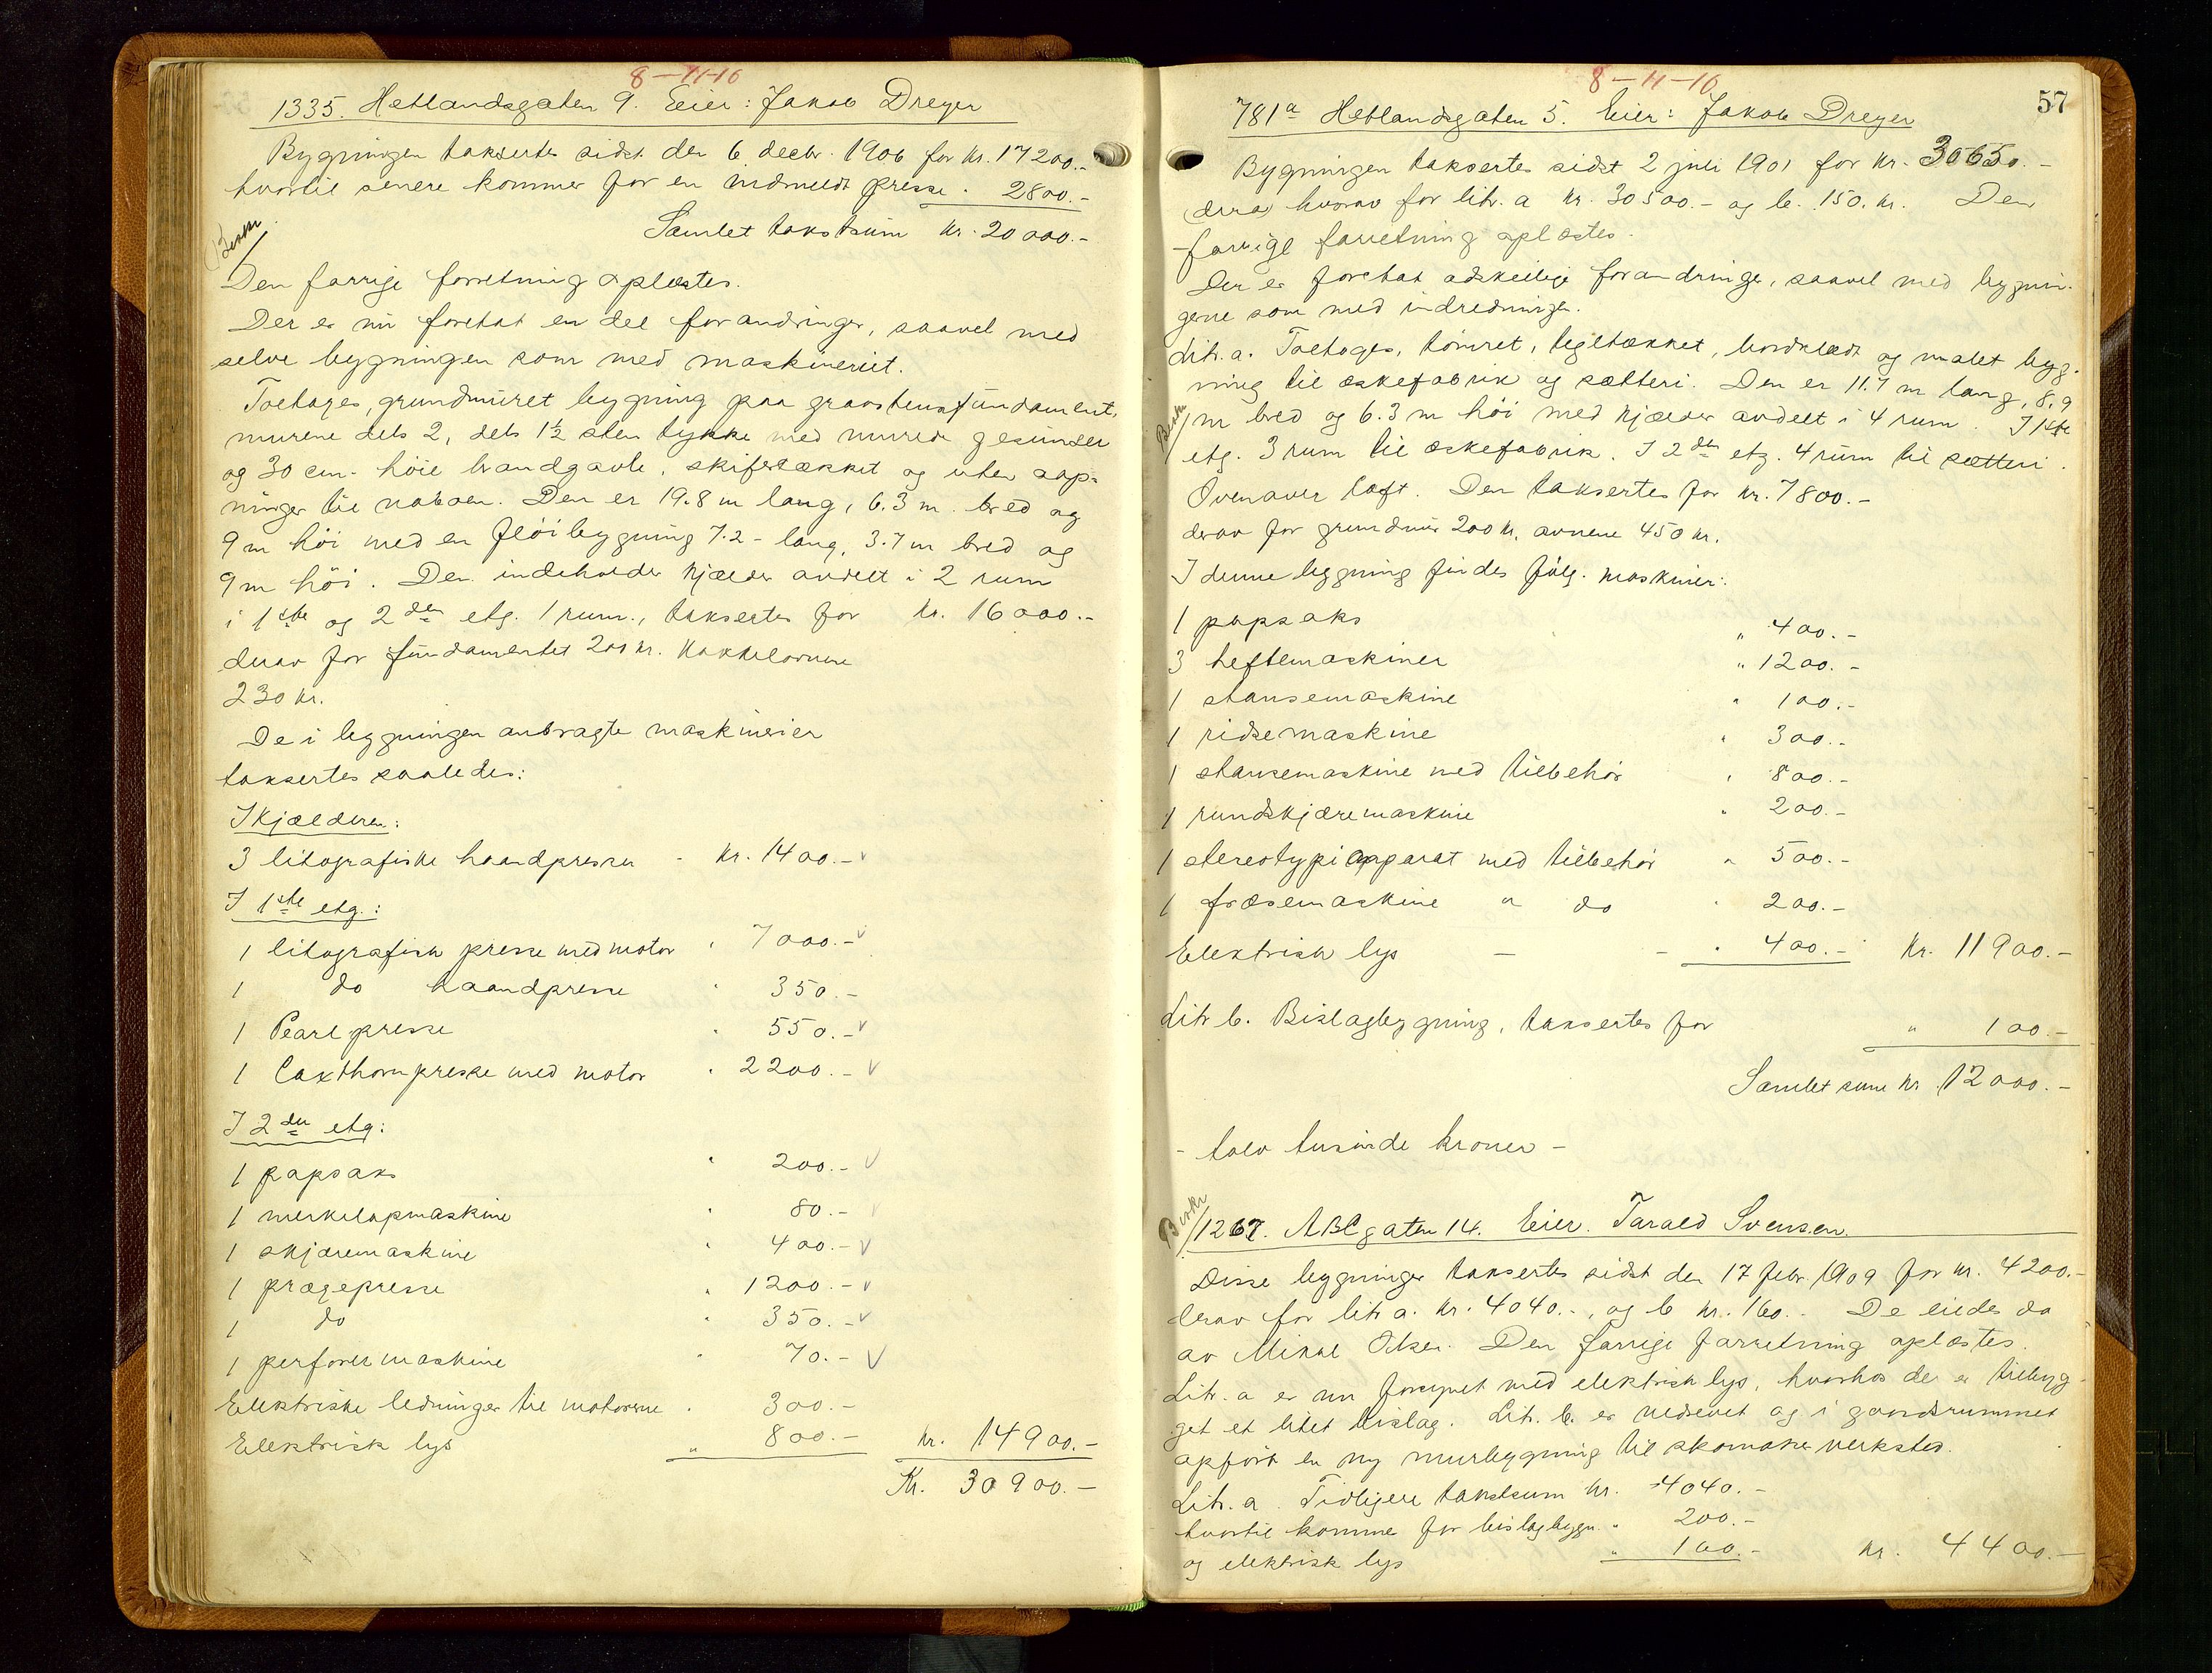 8-11-16
1335. Hetlandsgaten 9. Eier: Jakob Dreyer
Bygningen taksertes sidst den 6. decbr. 1906 for kr. 17200.-
hvortil senere kommer for en indmeldt presse " 2800.-
Samlet takstsum kr. 20 000.-
Den forrige forretning oplæstes.
Der er nu foretat en del forandringer, saavel med
selve bygningen som med maskineriet.
Toetages, grundmuret bygning paa graastensfundament,
murene dels 2, dels 1½ sten tykke med murede gesimser
og 30 cm. höie brandgavle, skifertækket og uten aap-
ninger til naboen. Den er 19.8 m lang, 6.3 m. bred og
9 m höi med en flöibygning 7.2 - lang, 3.7 m bred og
9 m höi. Den indeholder kjælder avdelt i 2 rum
i 1ste og 2den etg. 1 rum., taksertes for kr. 16 000.-
derav for fundamentet 200 kr. kakkelovnene
230 kr.
De i bygningen anbragte maskinerier
taksertes saaledes:
I kjælderen:
3 litografiske haandpresser - kr. 1400.- v
I 1ste etg.:
1 litografisk presse med motor " 7000.- v
1 do haandpresse " 350.-
1 Pearl presse " 550.- v
1 Caxthornpresse med motor " 2200.- v
I 2den etg:
1 papsaks " 200.- v
1 merkelapmaskine " 80.- v
1 skjæremaskine " 400.- v
1 prægepresse " 1200.- v
1 do " 350.- v
1 perforermaskine " 70.- v
Elektriske ledninger til motorerne " 300.-
Elektrisk lys " 800.- kr. 14900.-
Kr. 30900.-
8-11-16
57
781a Hetlandsgaten 5. Eier: Jakob Dreyer
Bygningen taksertes sidst 2 juli 1901 for kr. 30650.-
hvorav for litr. a kr. 30500.- og b. 150. kr. Den
forrige forretning oplæstes.
Der er foretat adskellige forandringer, saavel med bygnin-
gene som med indredningen.
Litr. a. Toetages, tömret, tegltækket, bordklædt og malet byg-
ning til æskefabrik og sætteri. Den er 11.7 m lang, 8,9
m bred og 6.3 m höi med kjælder avdelt i 4 rum. I 1ste
etg. 3 rum til æskefabrik. I 2den etg. 4 rum til sætteri.
Ovenover loft. Den taksertes for kr. 7800.-
derav for grundmur 200 kr, ovnene 450 kr.
I denne bygning findes fölg. maskiner:
1 papsaks " 400.-
3 heftemaskiner " 1200.-
1 stansemaskine " 100.-
1 ridsemaskine " 300.-
1 stansemaskine med tilbehör " 800.-
1 rundskjæremaskine " 200.-
1 stereotypiapparat med tilbehör " 500.-
1 fræsemaskine " do " 200.-
Elektrisk lys - - " 400.- kr. 11900.-
Litr b. Bislagbygning, taksertes for " 100.-
Samlet sum kr. 12000.-
- tolv tusinde kroner -
1267. ABCgaten 14. Eier. Tarald Svensen.
Disse bygninger taksertes sidst den 17 febr. 1909 for kr. 4200.-
derav for litr a. kr. 4040.-, og b kr. 160.- De eiedes da
av Mikal Olsen. Den forrige forretning oplæstes.
Litr. a er nu forsynet med elektrisk lys, hvorhos der er tilbyg-
get et litet bislag. Litr. b. er nedrevet og i gaardsrummet
opfört en ny murbygning til skomakerverksted.
Litr. a. Tidligere takstsum kr. 4040.-
hvortil kommer for bislagbygn. " 200.-
og elektrisk lys " 100.- kr. 4400.-